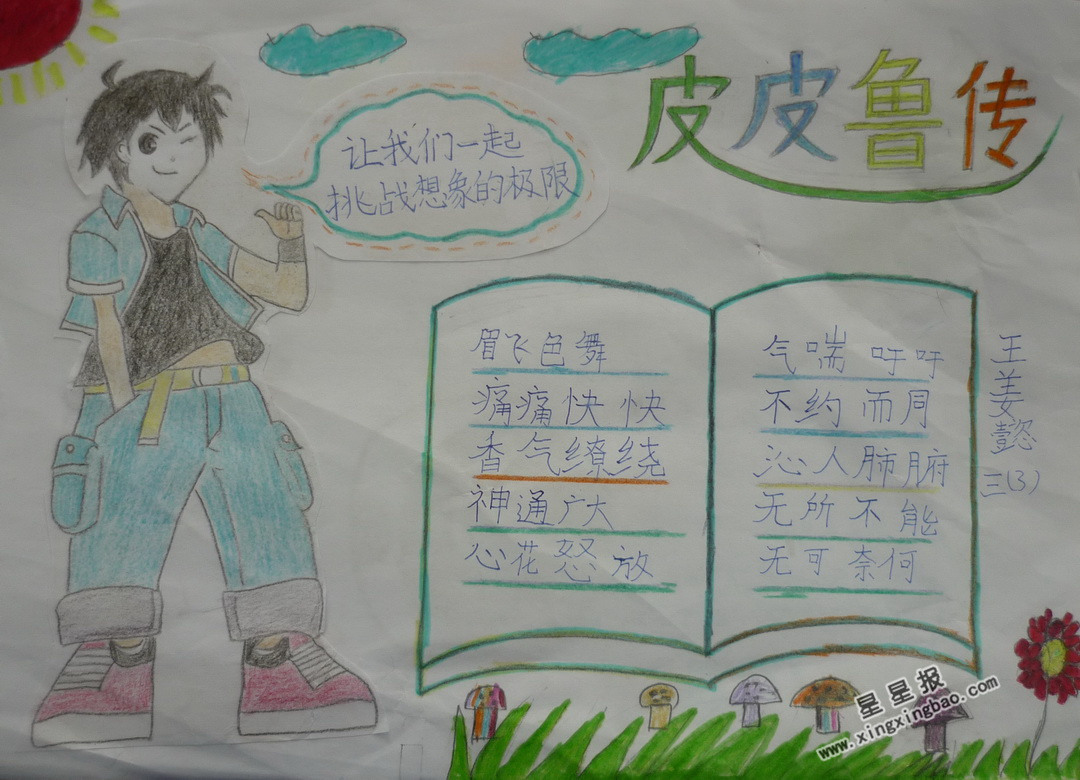 皮皮鲁传
让我们一起
挑战想象的极限
眉飞色舞
痛痛快快
香气缭绕
神通广大
心花怒放
气喘吁吁
不约而同
沁人肺腑
无所不能
无可奈何
王姜懿
三(3)
星星报
www.xingxingbao.com